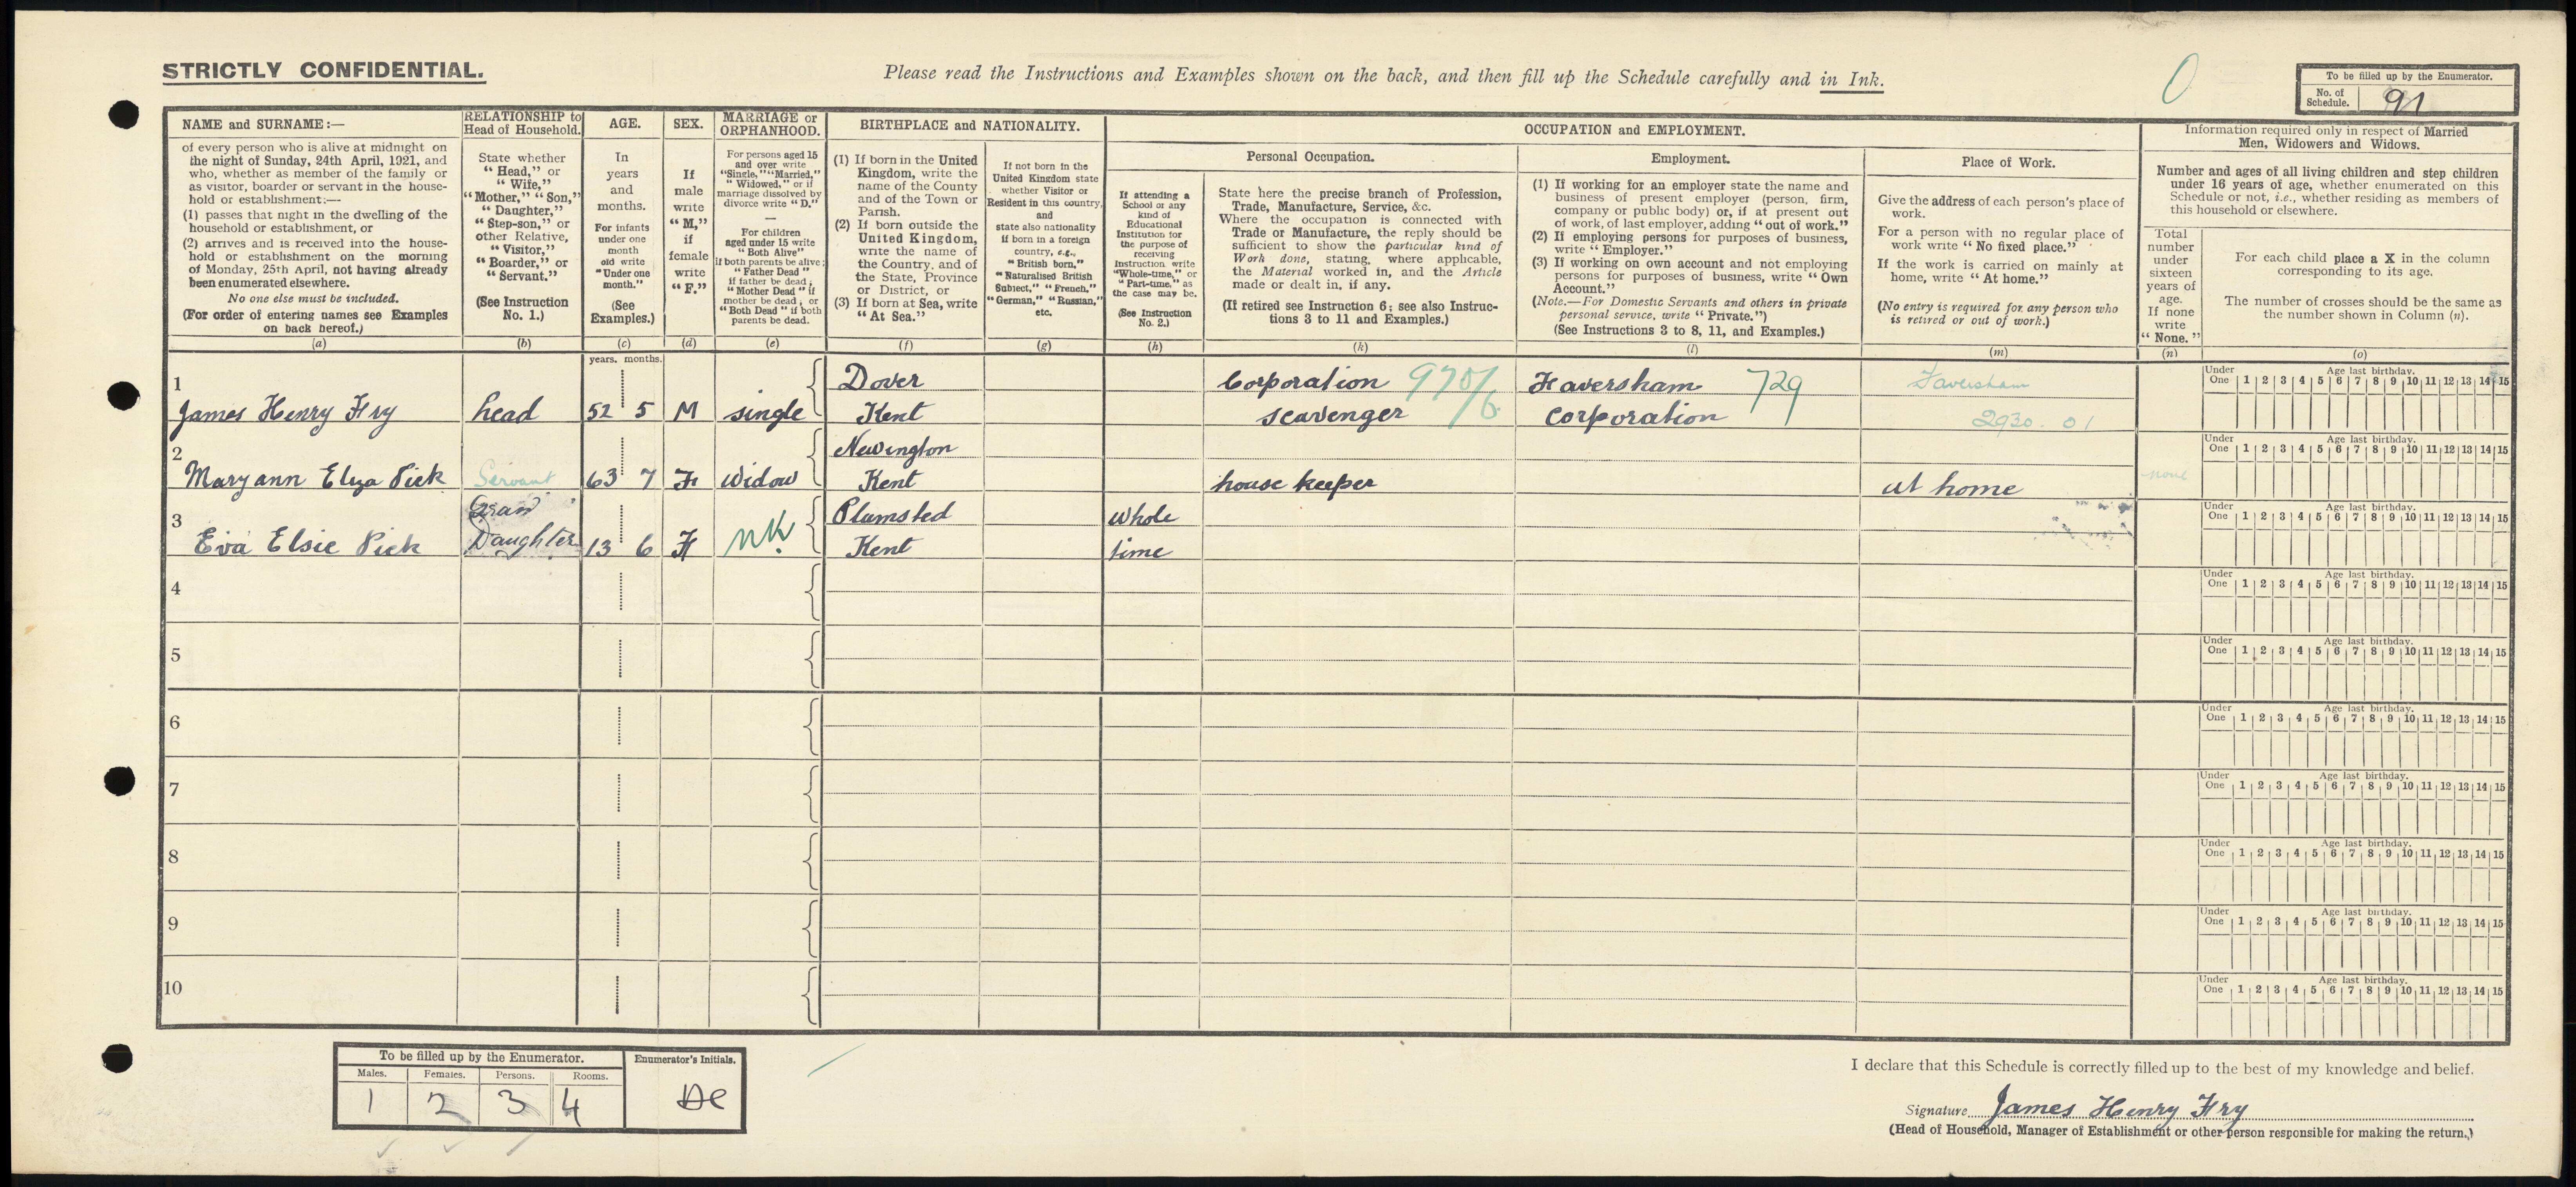 STRICTLY CONFIDENTIAL.
Please read the Instructions and Examples shown on the back, and then fill up the Schedule carefully and in Ink.
0
To be filled up by the Enumerator.
No. of Schedule. 91
NAME and SURNAME:—
of every person who is alive at midnight on
the night of Sunday, 24th April, 1921, and
who, whether as member of the family or
as visitor, boarder or servant in the house-
hold or establishment:—
(1) passes that night in the dwelling of the
household or establishment, or
(2) arrives and is received into the house-
hold or establishment on the morning
of Monday, 25th April, not having already
been enumerated elsewhere.
No one else must be included.
(For order of entering names see Examples
on back hereof.)
(a)
RELATIONSHIP to
Head of Household.
State whether
“Head,” or
“Wife,”
“Mother,” “Son,”
“Daughter,”
“Step-son,” or
other Relative,
“Visitor,”
“Boarder,” or
“Servant.”
(See Instruction
No. 1.)
(b)
AGE.
In
years
and
months.
For infants
under one
month
old write
“Under one
month.”
(See
Examples.)
(c)
SEX.
If
male
write
“M,”
if
female
write
“F.”
(d)
MARRIAGE or
ORPHANHOOD.
For persons aged 15
and over write
“Single,” “Married,”
“Widowed,” or if
marriage dissolved by
divorce write “D.”
—
For children
aged under 15 write
“Both Alive”
if both parents be alive;
“Father Dead”
if father be dead;
“Mother Dead” if
mother be dead; or
“Both Dead” if both
parents be dead.
(e)
BIRTHPLACE and NATIONALITY.
(1) If born in the United
Kingdom, write the
name of the County
and of the Town or
Parish.
(2) If born outside the
United Kingdom,
write the name of
the Country, and of
the State, Province
or District, or
(3) If born at Sea, write
“At Sea.”
(f)
If not born in the
United Kingdom state
whether Visitor or
Resident in this country,
and
state also nationality
if born in a foreign
country, e.g.,
“British born,”
“Naturalised British
Subject,” “French,”
“German,” “Russian,”
etc.
(g)
OCCUPATION and EMPLOYMENT.
Personal Occupation.
If attending a
School or any
kind of
Educational
Institution for
the purpose of
receiving
instruction write
“Whole-time,” or
“Part-time,” as
the case may be.
(See Instruction
No. 2.)
(h)
State here the precise branch of Profession,
Trade, Manufacture, Service, &c.
Where the occupation is connected with
Trade or Manufacture, the reply should be
sufficient to show the particular kind of
Work done, stating, where applicable,
the Material worked in, and the Article
made or dealt in, if any.
(If retired see Instruction 6; see also Instruc-
tions 3 to 11 and Examples.)
(k)
Employment.
(1) If working for an employer state the name and
business of present employer (person, firm,
company or public body) or, if at present out
of work, of last employer, adding “out of work.”
(2) If employing persons for purposes of business,
write “Employer.”
(3) If working on own account and not employing
persons for purposes of business, write “Own
Account.”
(Note.—For Domestic Servants and others in private
personal service, write “Private.”)
(See Instructions 3 to 8, 11, and Examples.)
(l)
Place of Work.
Give the address of each person's place of
work.
For a person with no regular place of
work write “No fixed place.”
If the work is carried on mainly at
home, write “At home.”
(No entry is required for any person who
is retired or out of work.)
(m)
Information required only in respect of Married
Men, Widowers and Widows.
Number and ages of all living children and step children
under 16 years of age, whether enumerated on this
Schedule or not, i.e., whether residing as members of
this household or elsewhere.
Total
number
under
sixteen
years of
age.
If none
write
“None.”
(n)
For each child place a X in the column
corresponding to its age.
The number of crosses should be the same as
the number shown in Column (n).
(o)
years. months.
1 Dover Corporation 970/6 Faversham 729 Faversham
James Henry Fry head 52 5 M single Kent scavenger corporation 2930.01
Under One Age last birthday. 1 2 3 4 5 6 7 8 9 10 11 12 13 14 15
2 Newington
Mary ann Eliza Pick Servant 63 7 F Widow Kent house keeper at home none
Under One Age last birthday. 1 2 3 4 5 6 7 8 9 10 11 12 13 14 15
3 Gran Plumsted whole
Eva Elsie Pick Daughter 13 6 F NK Kent time
Under One Age last birthday. 1 2 3 4 5 6 7 8 9 10 11 12 13 14 15
4
Under One Age last birthday. 1 2 3 4 5 6 7 8 9 10 11 12 13 14 15
5
Under One Age last birthday. 1 2 3 4 5 6 7 8 9 10 11 12 13 14 15
6
Under One Age last birthday. 1 2 3 4 5 6 7 8 9 10 11 12 13 14 15
7
Under One Age last birthday. 1 2 3 4 5 6 7 8 9 10 11 12 13 14 15
8
Under One Age last birthday. 1 2 3 4 5 6 7 8 9 10 11 12 13 14 15
9
Under One Age last birthday. 1 2 3 4 5 6 7 8 9 10 11 12 13 14 15
10
Under One Age last birthday. 1 2 3 4 5 6 7 8 9 10 11 12 13 14 15
To be filled up by the Enumerator. Enumerator's Initials.
Males. Females. Persons. Rooms.
1 2 3 4
I declare that this Schedule is correctly filled up to the best of my knowledge and belief.
Signature James Henry Fry
(Head of Household, Manager of Establishment or other person responsible for making the return.)